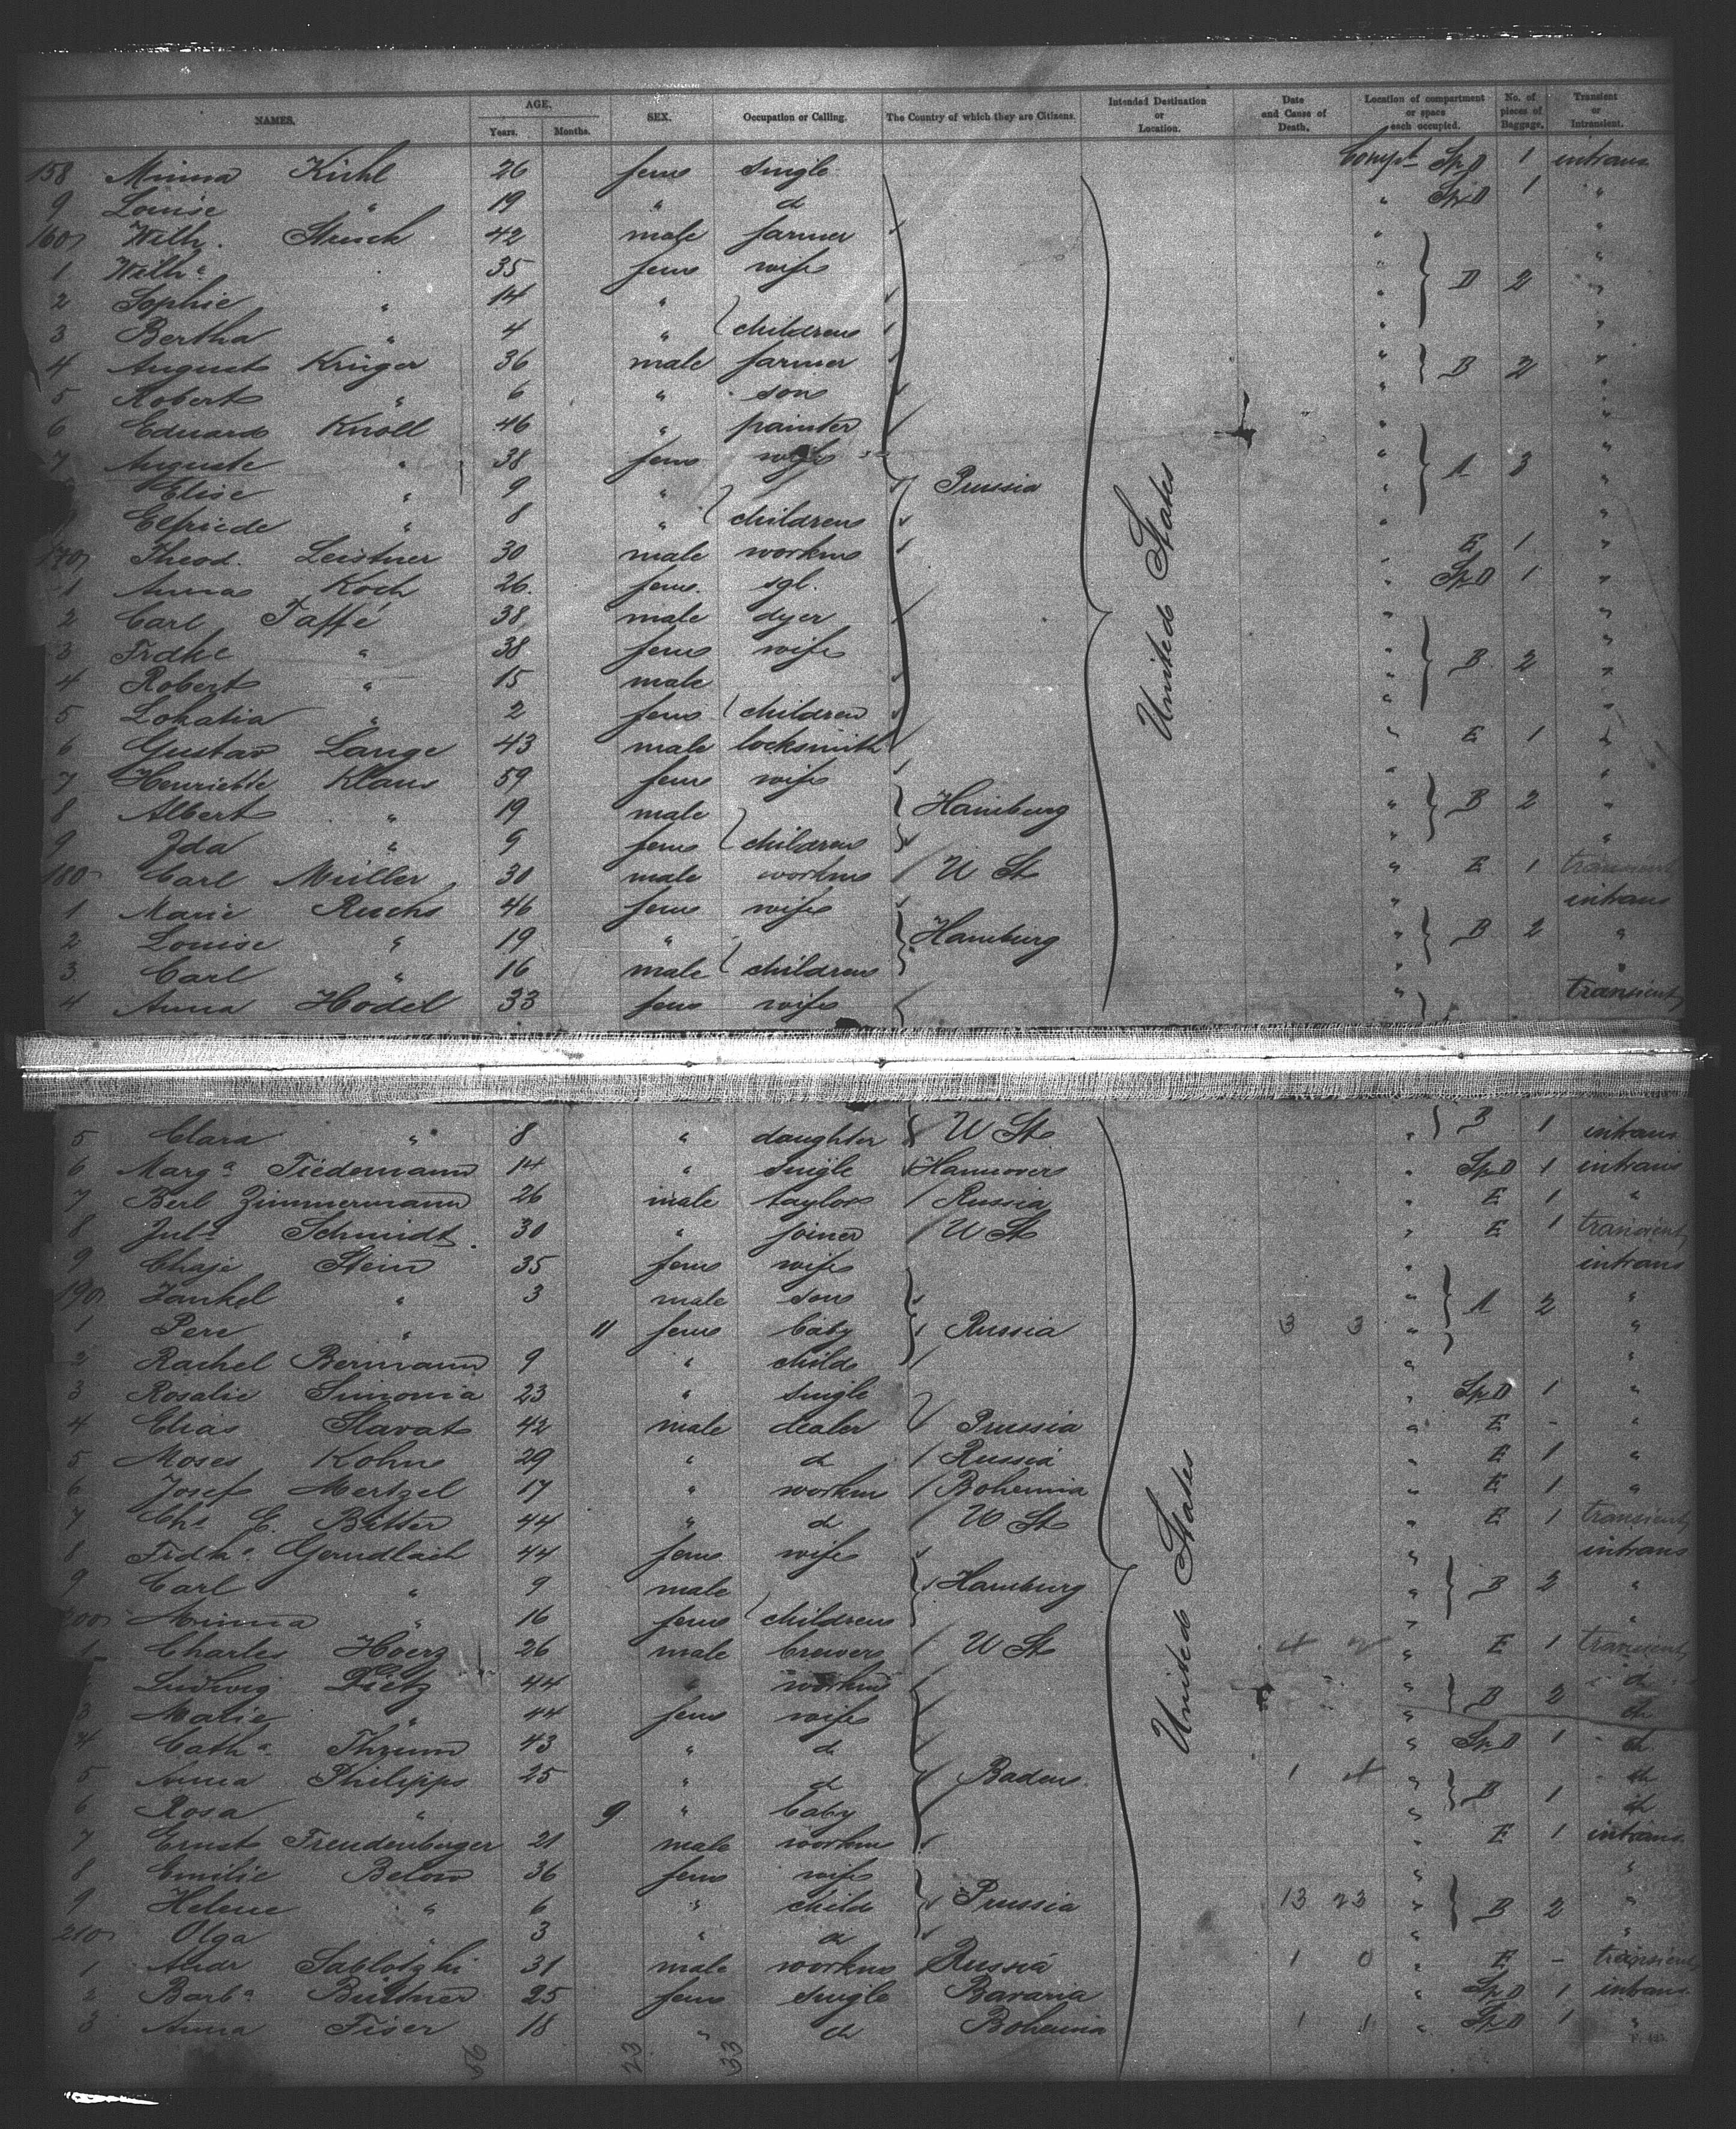 NAMES. AGE. Years. Months. SEX. Occupation or Calling. The Country of which they are Citizens. Intended Destination or Location. Date and Cause of Death. Location of compartment or space each occupied. No. of pieces of Baggage. Transient or Intransient.
158 Minna Kiehl 26 fem single Compt Sp.D 1 intrans
9 Louise " 19 " d " Sp.D 1 "
160 Wilh. Strack 42 male farmer " "
1 Wilhe. 35 fem wife " D 2 "
2 Sophie " 14 " " "
3 Bertha " 4 " children " "
4 August Krüger 36 male farmer " B 2 "
5 Robert " 6 " son " "
6 Eduard Knoll 46 " painter " "
7 Auguste " 38 fem wife " A 3 "
Elise " 9 " Prussia " "
Elfriede " 8 " children " "
170 Theod. Leistner 30 male workm " E 1 "
1 Anna Koch 26. fem. sgl. " Sp.D 1 "
2 Carl Taffé 38 male dyer "
3 Frdke " 38 fem wife United States " B 2 "
4 Robert " 15 male " "
5 Lokatia " 2 fem children " "
6 Gustav Lange 43 male locksmith " E 1 "
7 Henriette Klaus 59 fem wife " "
8 Albert " 19 male Hamburg " B 2 "
9 Ida " 9 fem children " "
180 Carl Müller 30 male workm U St " E 1 transient
1 Marie Ruchs 46 fem wife " intrans
2 Louise " 19 " Hamburg " B 2 "
3 Carl " 16 male children " "
4 Anna Hodel 33 fem wife " transient
5 Clara " 8 " daughter U St " B 1 intrans
6 Marga. Tiedemann 14 " single Hannover " Sp.D 1 intrans
7 Berl Zimmermann 26 male taylor Russia " E 1 "
8 Juls. Schmidt. 30 " joiner U St " E 1 transient
9 Chaje Stein 35 fem wife " intrans
190 Jankel " 3 male son " A 2 "
1 Pere " 11 fem baby Russia 3 3 " "
2 Rachel Bermann 9 " child " "
3 Rosalie Simonia 23 " single " Sp.D 1 "
4 Elias Slavat 42 male dealer Prussia " E - "
5 Moses Kohn 29 " d Russia " E 1 "
6 Josef Mertzel 17 " workm Bohemia " E 1 "
7 Chs. E. Bitter 44 " d U St " E 1 transient
8 Frdke. Gerndlach 44 fem wife " intrans
9 Carl " 9 male Hamburg " B 2 "
200 Minna " 16 fem children " "
1 Charles Hoerz 26 male brewer U St United States " E 1 transient
Ludwig Dietz 44 " workm " B 2 d
3 Marie " 44 fem wife " d
4 Catha. Thrum 43 " d " Sp.D 1 d
5 Anna Philipps 25 " d Baden. 1 4 " B 1 d
6 Rosa " 9 " baby " d
7 Ernst Freudenberger 21 male workm " E 1 intrans
8 Emilie Below 36 fem wife " "
9 Helene " 6 " child Prussia 13 23 " B 2 "
210 Olga " 3 " d " "
1 Andr Sablotzki 31 male workm Russia 1 0 " E - transient
2 Barba. Büttner 25 fem single Bavaria " Sp.D 1 intrans
3 Anna Fiser 18 " d Bohemia 1 1 " Sp.D 1 "
56 23 33